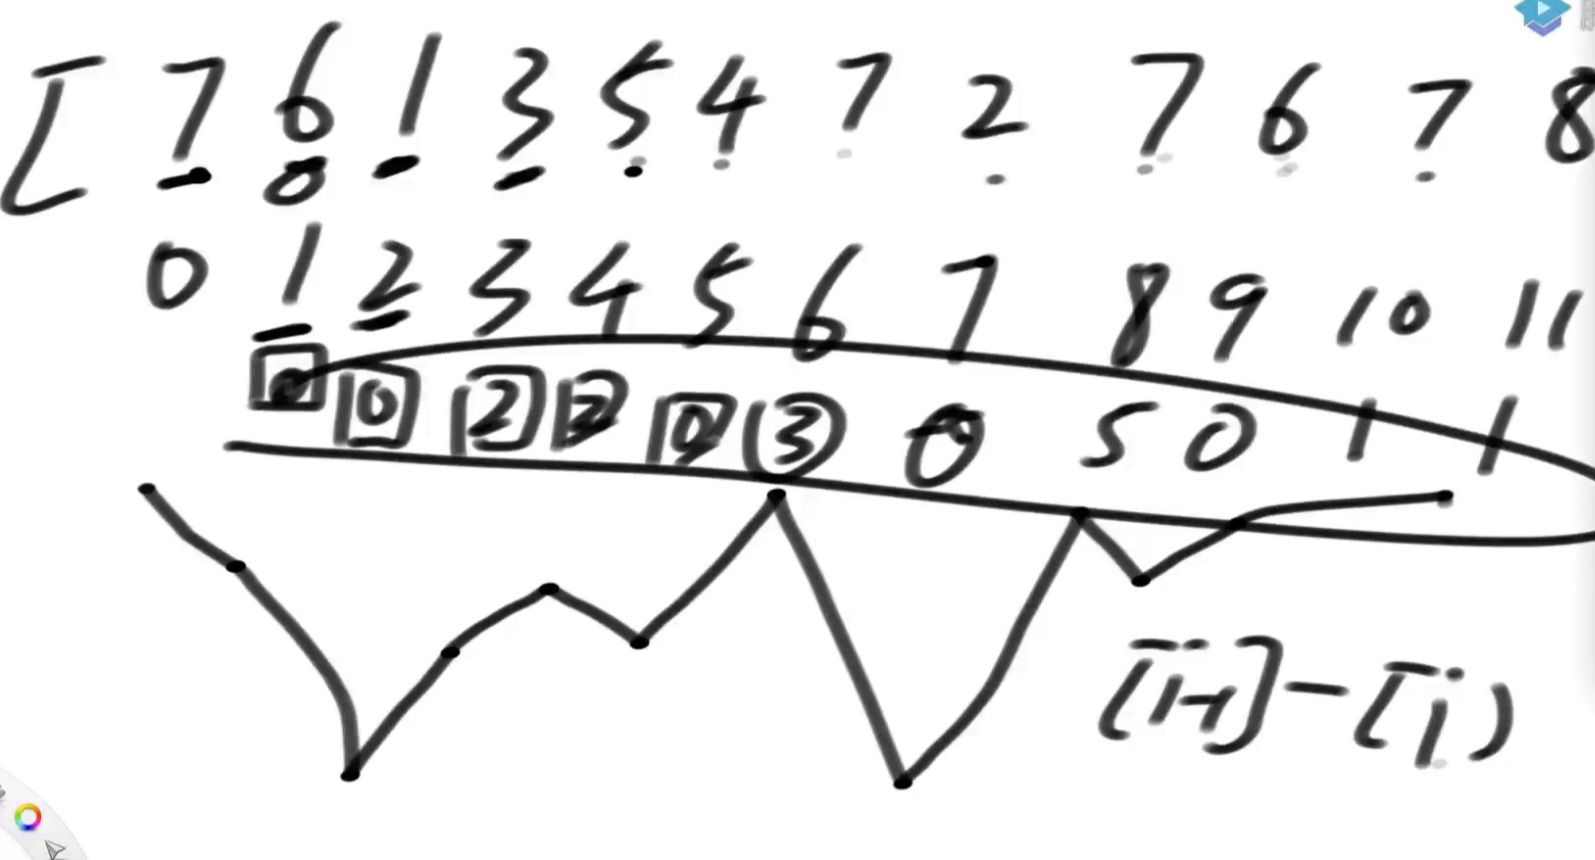 [ 7 6 1 3 5 4 7 2 7 6 7 8
0
0 1 2 3 4 5 6 7 8 9 10 11
0 0 2 2 0 3 0 5 0 1 1
[i+1] - [i)